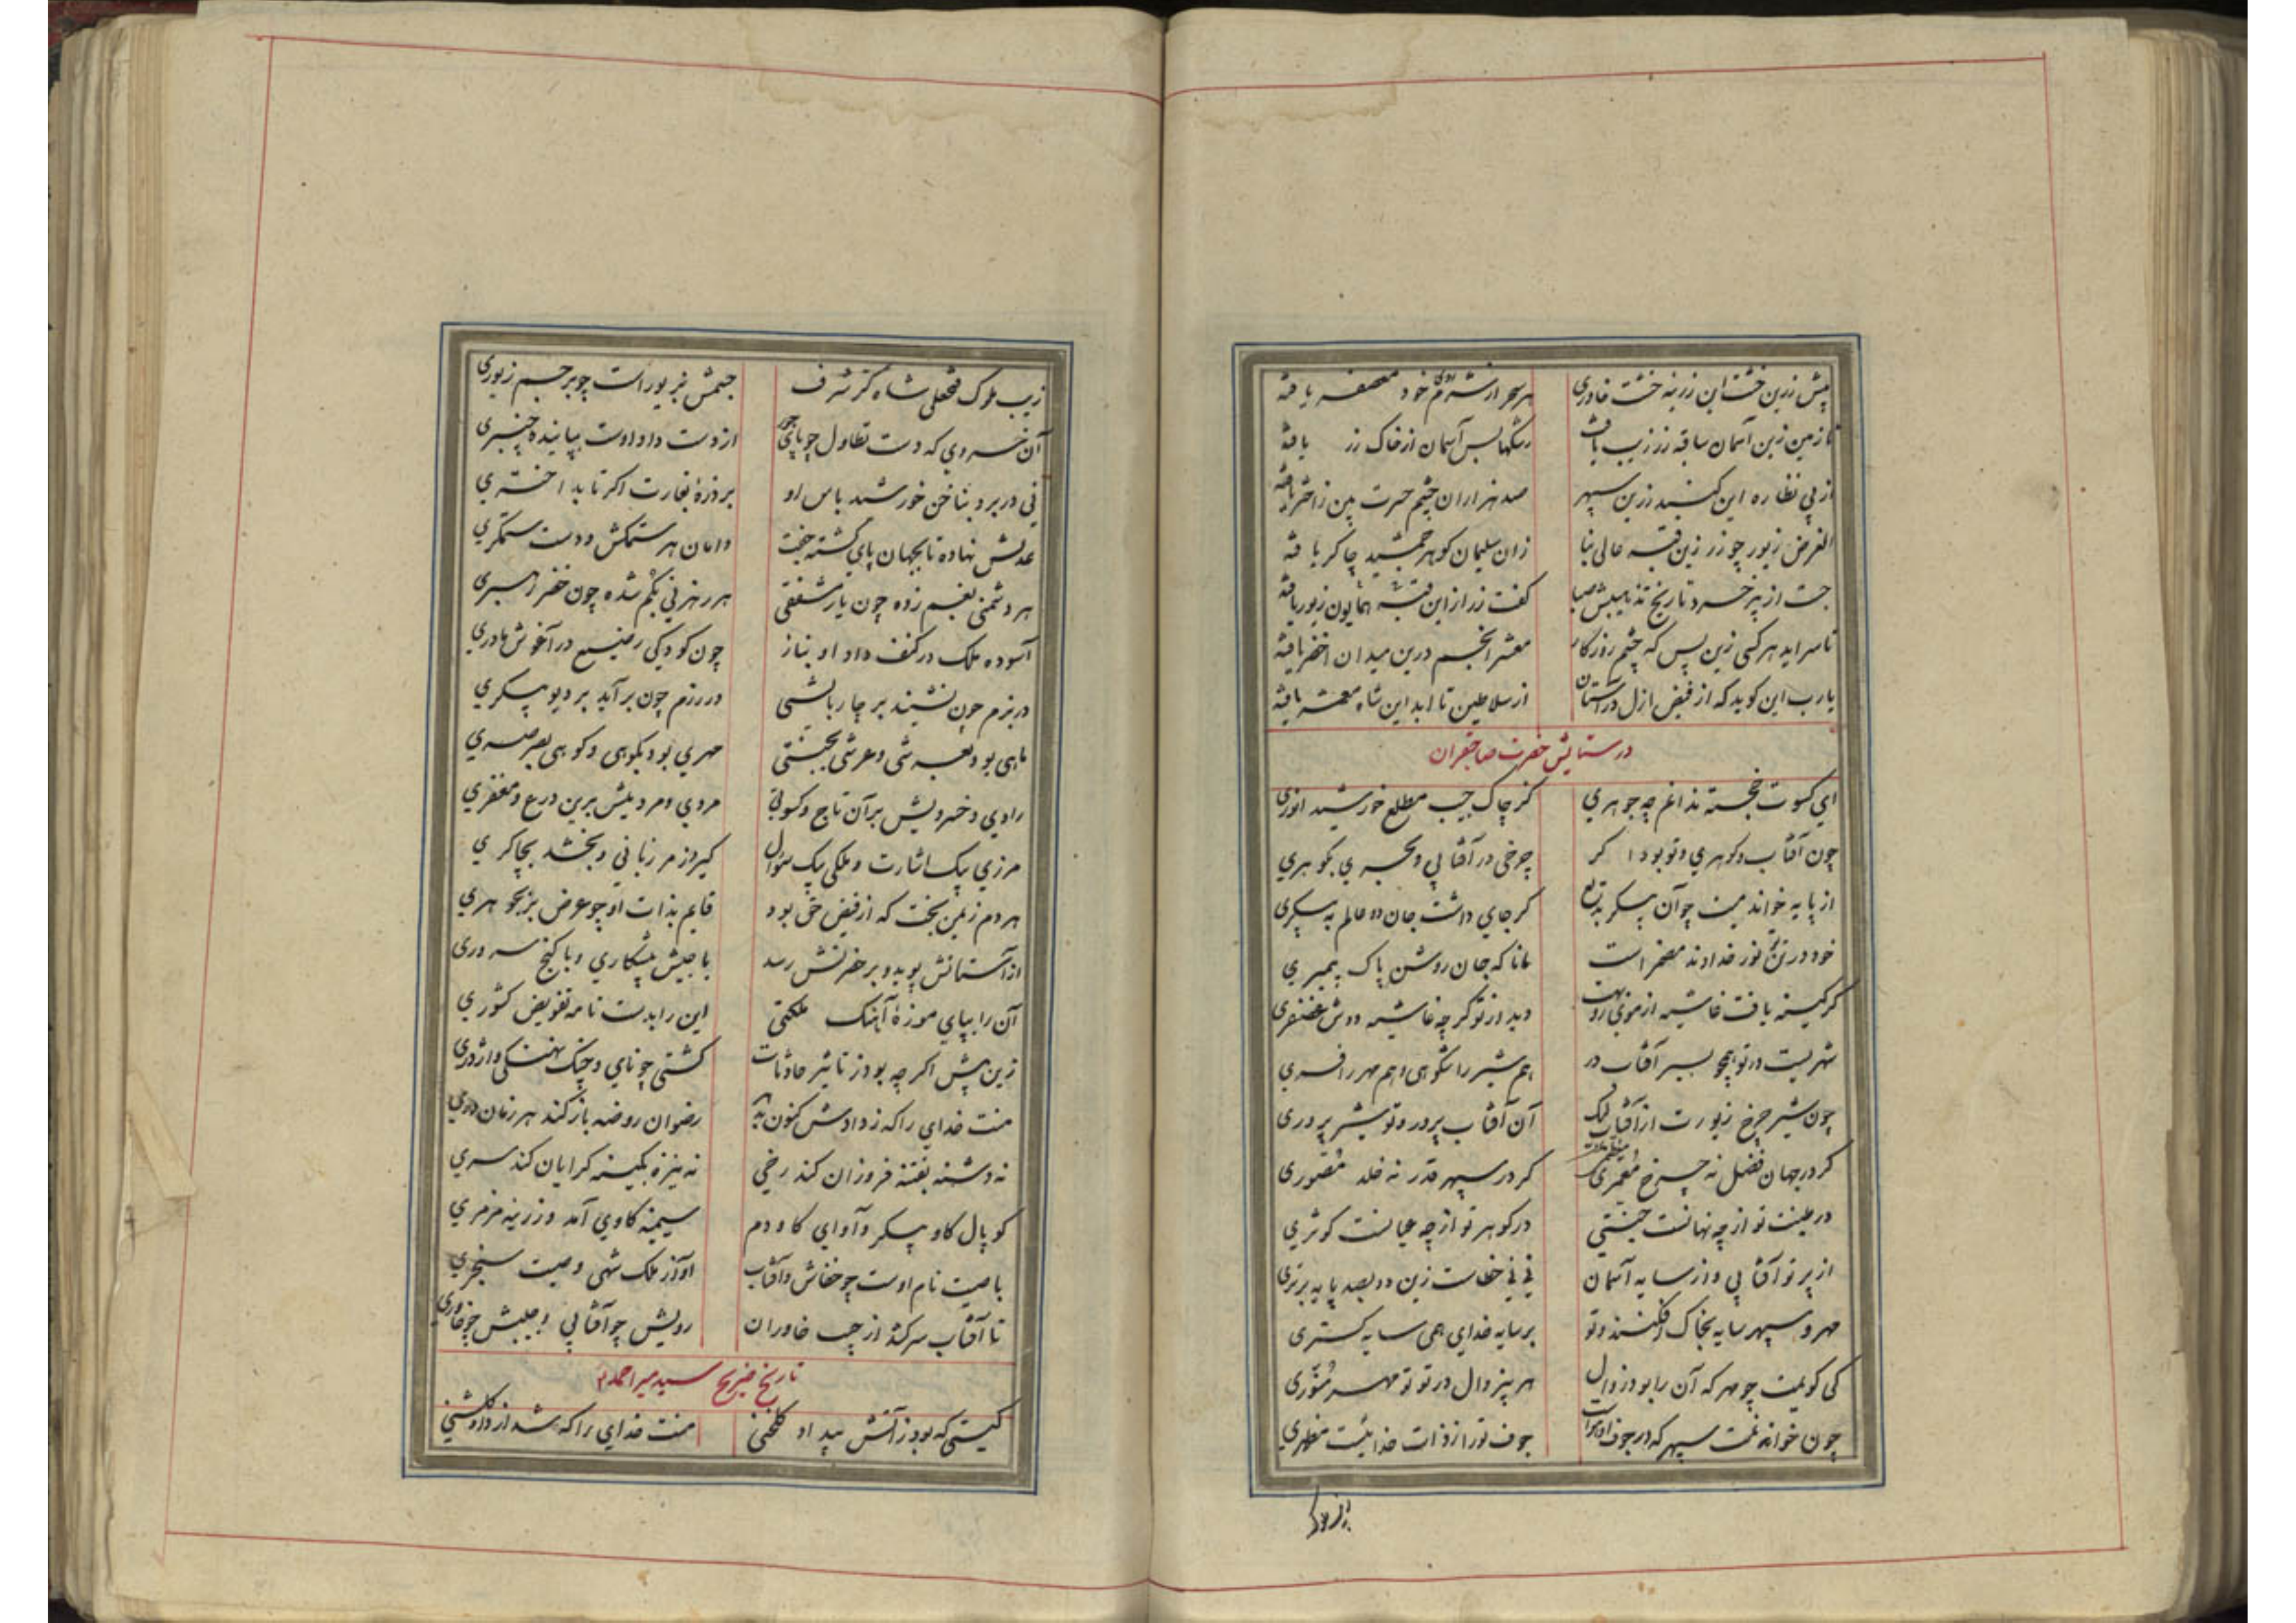 پیش زرین خشت این زرینه خشت خاوری هر سحر از شرم روی خود معصفر یافته
تا زمین زین آسمان سا قبه زر زیب یافت رشکها بس آسمان از خاک زر یافته
از پی نظاره این گنبد زرین سپهر صد هزاران چشم حسرت بین ز اختر یافته
الغرض زیور چو زر زین قبه عالی بنا زان سلیمان کوهر جمشید چاکر یافته
جست از پیر خرد تاریخ تذهیبش صبا گفت زر از این قبه همایون زیور یافته
تا سراید هر کسی زین پس که چشم روزکار معشر انجم درین میدان اخضر یافته
یارب این کوید که از فیض ازل در آستان از سلاطین تا ابد این شاه معشر یافته
در ستایش حضرت صاحبقران
ای کسوت خجسته ندانم چه جوهری کز چاک جیب مطلع خورشید انوری
چون آفتاب و کوهری و تو بود اگر چرخی در آفتابی و بحری بکوهری
از پایه خواندمیت چو آن پیکر بدیع کر جای داشت جان دو عالم به پیکری
خود در تنی نور خداوند مضمر است مانا که جان روشن پاک پیمبری
کر کینه یافت غاشیه از موی روبهت دید از تو کرچه غاشیه دوش غضنفری
شهریست در تو همچو بسیر آفتاب در هم شیر را شکوهی و هم مهر را فری
چون شیر چرخ زیورت از آفتاب لیک آن آفتاب پرور و تو شیر پروری
کر در جهان فضل نه چرخ مقعری کر در سپهر قدر نه خلد مصوری
در طینت تو از چه نهانست جنتی در کوهر تو از چه عیانست کوثری
از پرتو آفتابی و از سایه آسمان نی نی خطاست زین دو بصد پایه برتری
مهر و سپهر سایه بخاک افکنند و تو بر سایه خدای همی سایه کستری
کی کویمت چو مهر که آن را بود زوال مهر بیزوال در تو تو مهر منوری
چون خوانمت سپهر که در جوف او جوف تو را ز ذات خدائیست مظهری
زیب ملوک فتحعلی شاه کز شرف جسمش بزیور است چو بر جسم زیوری
آن خسروی که دست تطاول چو پای جور از دست داد اوست بپاینده چنبری
نی در برد بناخن خورشید باس او بر ذره بغارت اکر تابد اختری
عدلش نهاده تا بجهان پای کشته جفت دامان هر ستمکش و دست ستمکری
هر دشمنی بغم زده چون یار مشفقی هر رهزنی بکم شده چون خضر رهبری
آسوده ملک در کنف داد او بناز چون کودکی رضیع در آغوش مادری
در بزم چون نشیند بر چار بالشی در رزم چون بر آید بر دیو پیکری
ماهی بود بعرشی و عرشی بجنتی مهری بود بکوهی و کوهی بصرصری
رادی و خسرویش بر آن تاج و کسوتی مردی و مردیش برین درع و مغفری
مرزی بیک اشارت و ملکی بیک سؤال گیرد ز مرزبانی و بخشد بچاکری
هر دم ز یمن بخت که از فیض حق بود قایم بذات او چو عرض بر بجوهری
از آستانش پوید و بر حضرتش رسد با جیش پیشکاری و با گنج سروری
آن را بپای موزه آهنک ملکتی این را بدست نامه تفویض کشوری
زین پیش اکرچه بود ز تاثیر حادثات کشتی چو نای و چنک نهنکی و اژدری
منت خدای را که ز دادش کنون رضوان روضه باز کند هر زمان دری
نه دشنه بفتنه فروزان کند رخی نه نیزه بکینه کرایان کند سری
کوپال کاو پیکر و آوای کاودم سیمینه کاوی آمد و زرینه مزمری
با صیت نام اوست چو خفاش و آفتاب آواز ملک شهی و صیت سنجری
تا آفتاب سر کند از جیب خاوران رویش چو آفتابی و جیبش چو خاوری
تاریخ ضریح سید میر احمد
کیتی که بود ز آتش بیداد گلخنی منت خدای را که شد از داد گلشنی